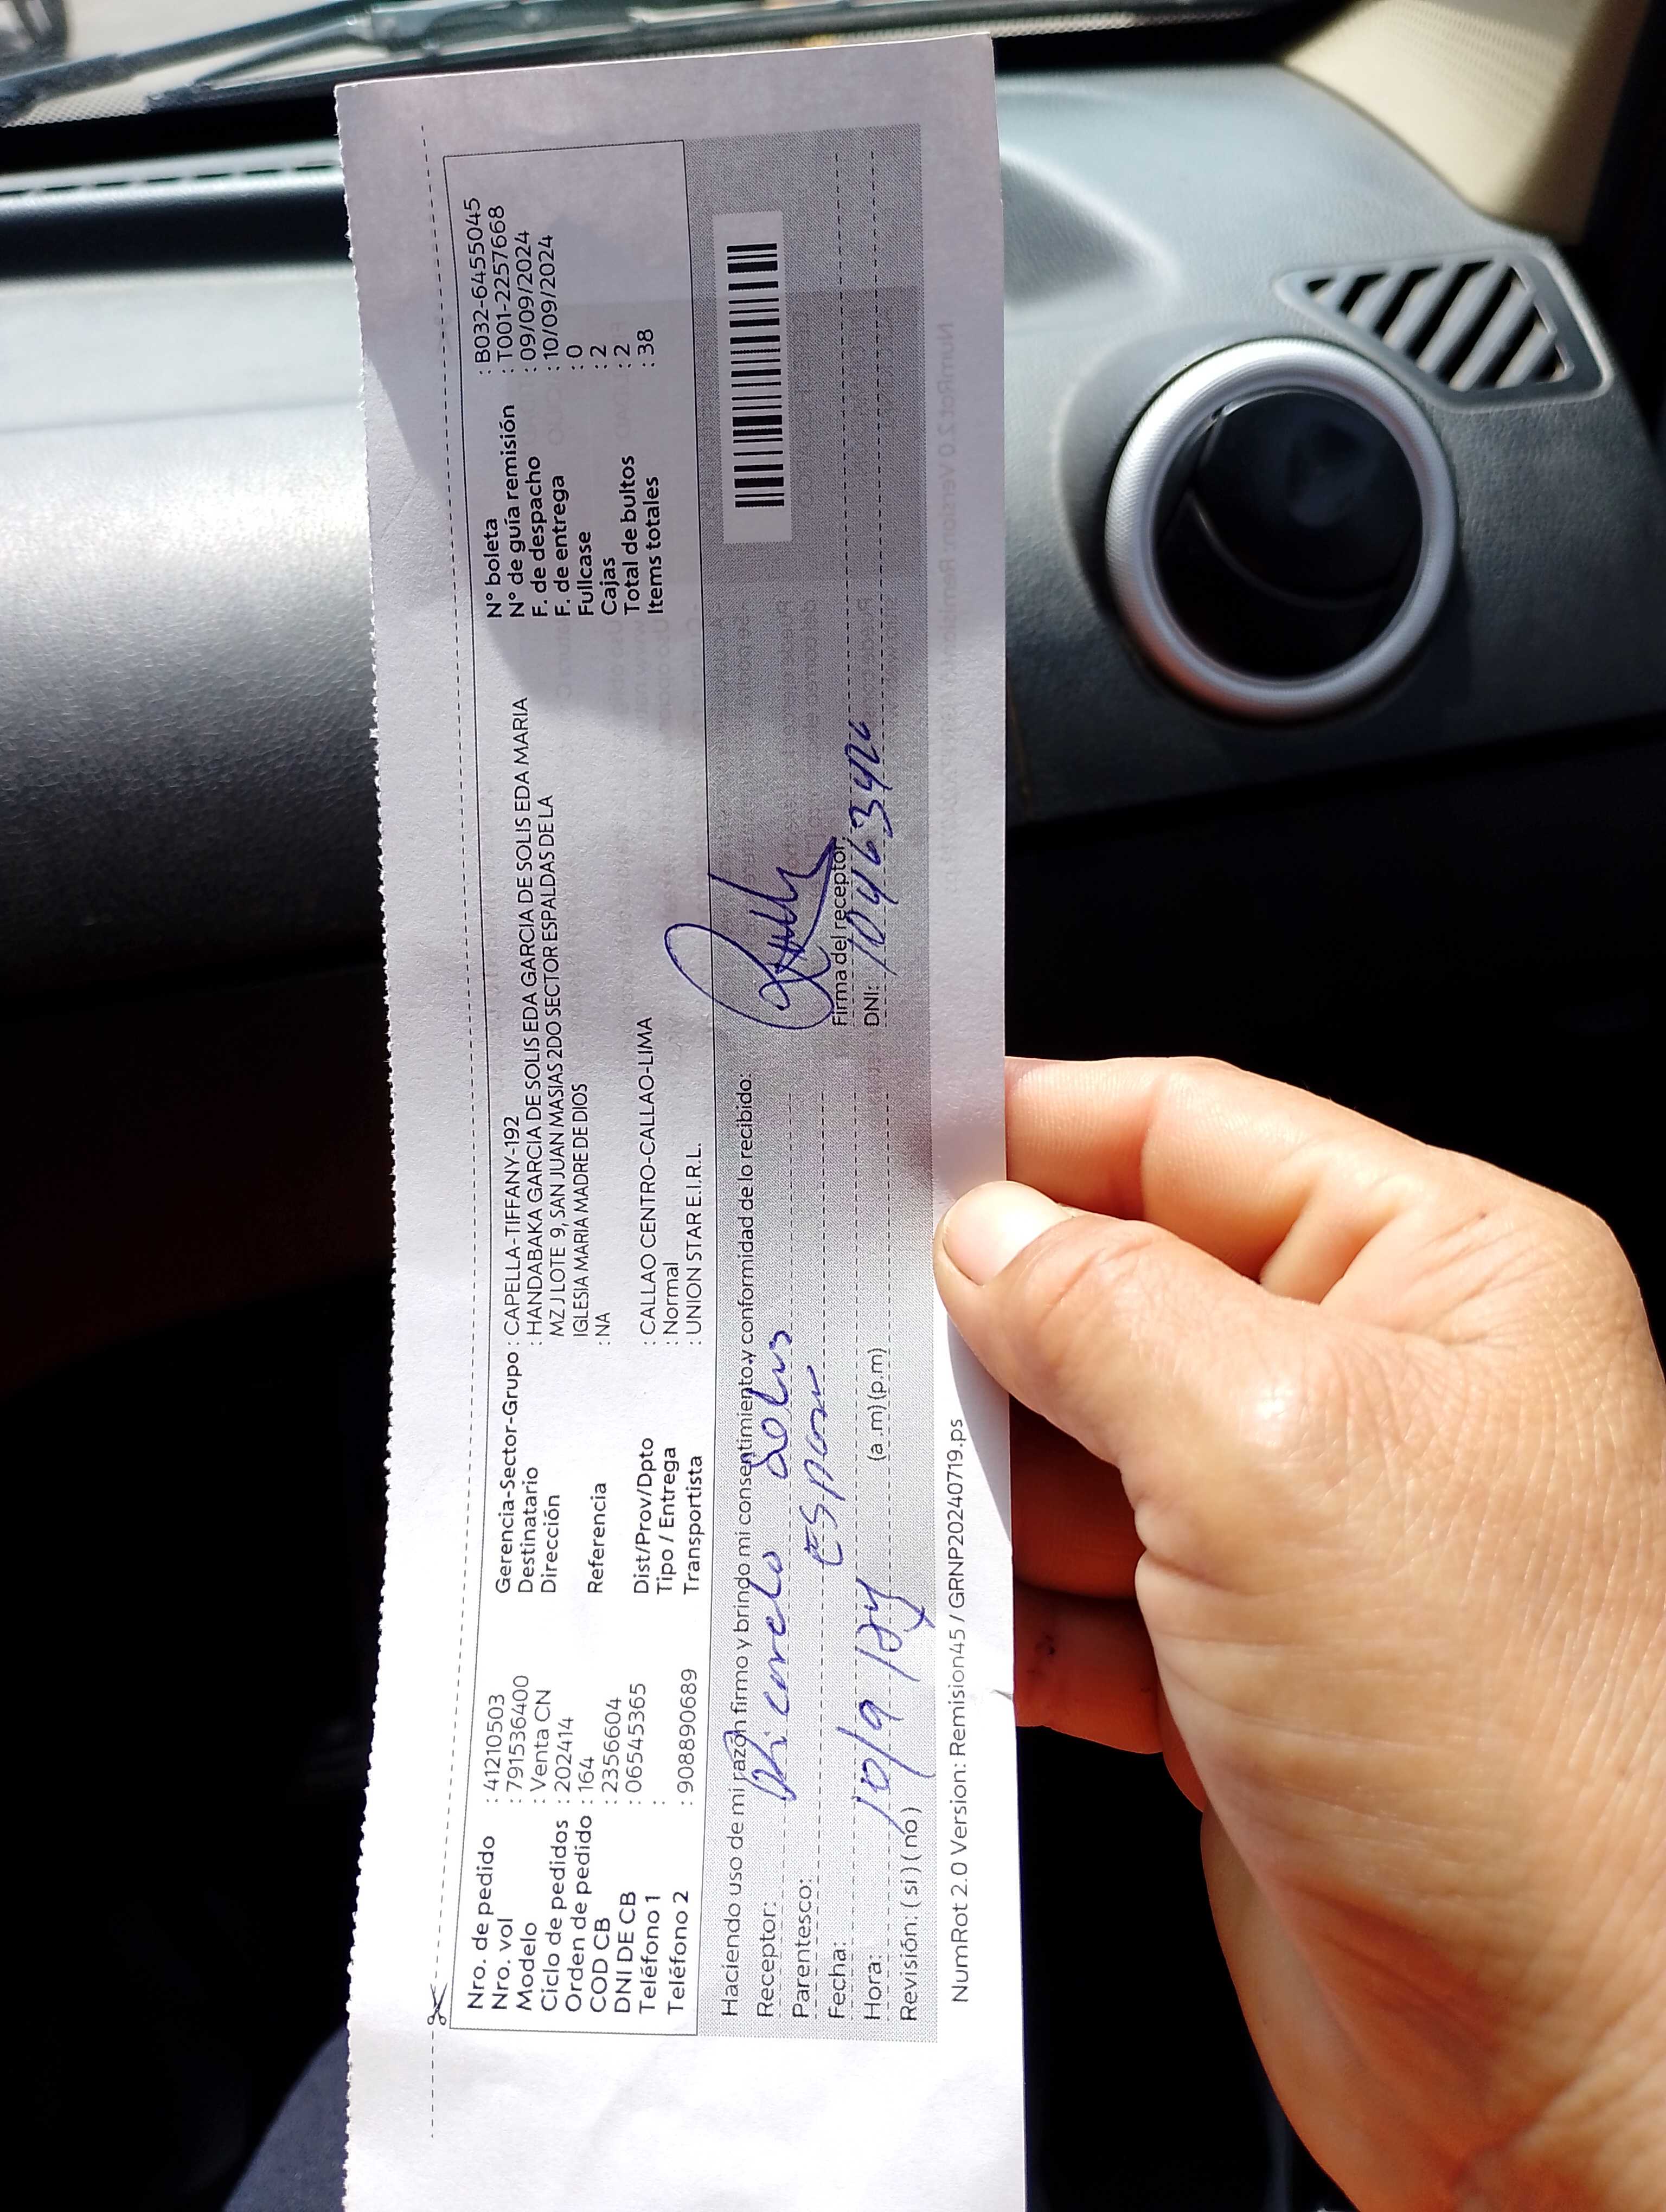 Nro. de pedido : 41210503
Nro. vol : 791536400
Modelo : Venta CN
Ciclo de pedidos : 202414
Orden de pedido : 164
COD CB : 2356604
DNI DE CB : 06545365
Teléfono 1 :
Teléfono 2 : 908890689
Gerencia-Sector-Grupo : CAPELLA-TIFFANY-192
Destinatario : HANDABAKA GARCIA DE SOLIS EDA GARCIA DE SOLIS EDA MARIA
Dirección MZ J LOTE 9, SAN JUAN MASIAS 2DO SECTOR ESPALDAS DE LA
IGLESIA MARIA MADRE DE DIOS
Referencia : NA
Dist/Prov/Dpto : CALLAO CENTRO-CALLAO-LIMA
Tipo / Entrega : Normal
Transportista : UNION STAR E.I.R.L.
N° boleta : B032-6455045
N° de guía remisión : T001-2257668
F. de despacho : 09/09/2024
F. de entrega : 10/09/2024
Fullcase : 0
Cajas : 2
Total de bultos : 2
Items totales : 38
Haciendo uso de mi razón firmo y brindo mi consentimiento y conformidad de lo recibido:
Receptor: Solis
Parentesco:
Fecha: 10/9/24
Hora: (a.m) (p.m)
Revisión: ( si ) ( no )
Firma del receptor:
DNI:
NumRot 2.0 Version: Remision45 / GRNP20240719.ps